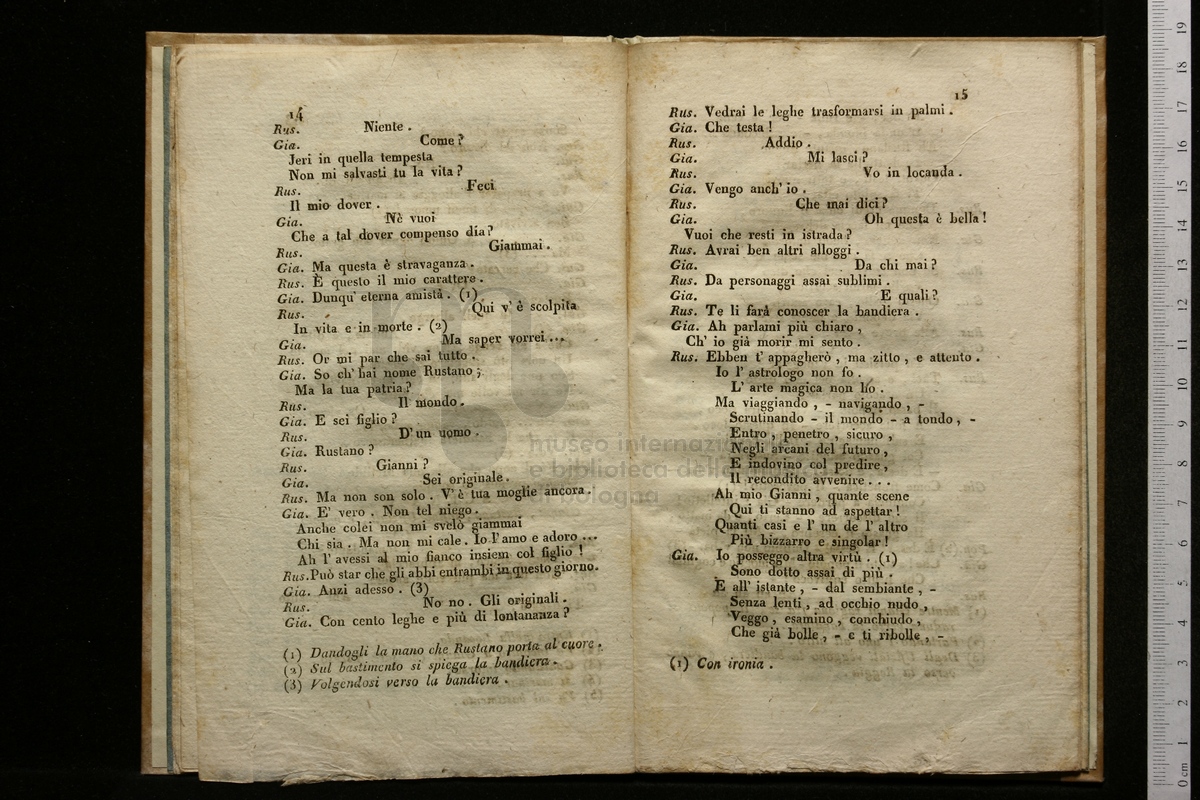 14
Rus. Niente .
Gia. Come ?
Jeri in quella tempesta
Non mi salvasti tu la vita ?
Rus. Feci
Il mio dover .
Gia. Nè vuoi
Che a tal dover compenso dia ?
Rus. Giammai .
Gia. Ma questa è stravaganza .
Rus. È questo il mio carattere .
Gia. Dunqu' eterna amistà . (1)
Rus. Qui v' è scolpita
In vita e in morte . (2)
Gia. Ma saper vorrei ...
Rus. Or mi par che sai tutto .
Gia. So ch' hai nome Rustano ;
Ma la tua patria ?
Rus. Il mondo .
Gia. E sei figlio ?
Rus. D' un uomo .
Gia. Rustano ?
Rus. Gianni ?
Gia. Sei originale .
Rus. Ma non son solo . V' è tua moglie ancora .
Gia. E' vero . Non tel niego .
Anche colei non mi svelò giammai
Chi sia . Ma non mi cale . Io l' amo e adoro ...
Ah l' avessi al mio fianco insiem col figlio !
Rus. Può star che gli abbi entrambi in questo giorno .
Gia. Anzi adesso . (3)
Rus. No no . Gli originali .
Gia. Con cento leghe e più di lontananza ?
(1) Dandogli la mano che Rustano porta al cuore .
(2) Sul bastimento si spiega la bandiera .
(3) Volgendosi verso la bandiera .
15
Rus. Vedrai le leghe trasformarsi in palmi .
Gia. Che testa !
Rus. Addio .
Gia. Mi lasci ?
Rus. Vo in locanda .
Gia. Vengo anch' io .
Rus. Che mai dici ?
Gia. Oh questa è bella !
Vuoi che resti in istrada ?
Rus. Avrai ben altri alloggi .
Gia. Da chi mai ?
Rus. Da personaggi assai sublimi .
Gia. E quali ?
Rus. Te li farà conoscer la bandiera .
Gia. Ah parlami più chiaro ,
Ch' io già morir mi sento .
Rus. Ebben t' appagherò , ma zitto , e attento .
Io l' astrologo non fo .
L' arte magica non ho .
Ma viaggiando , - navigando , -
Scrutinando - il mondo - a tondo , -
Entro , penetro , sicuro ,
Negli arcani del futuro ,
E indovino col predire ,
Il recondito avvenire . . .
Ah mio Gianni , quante scene
Qui ti stanno ad aspettar !
Quanti casi e l' un de l' altro
Più bizzarro e singolar !
Gia. Io posseggo altra virtù . (1)
Sono dotto assai di più .
E all' istante , - dal sembiante , -
Senza lenti , ad occhio nudo ,
Veggo , esamino , conchiudo ,
Che già bolle , - e ti ribolle , -
(1) Con ironia .